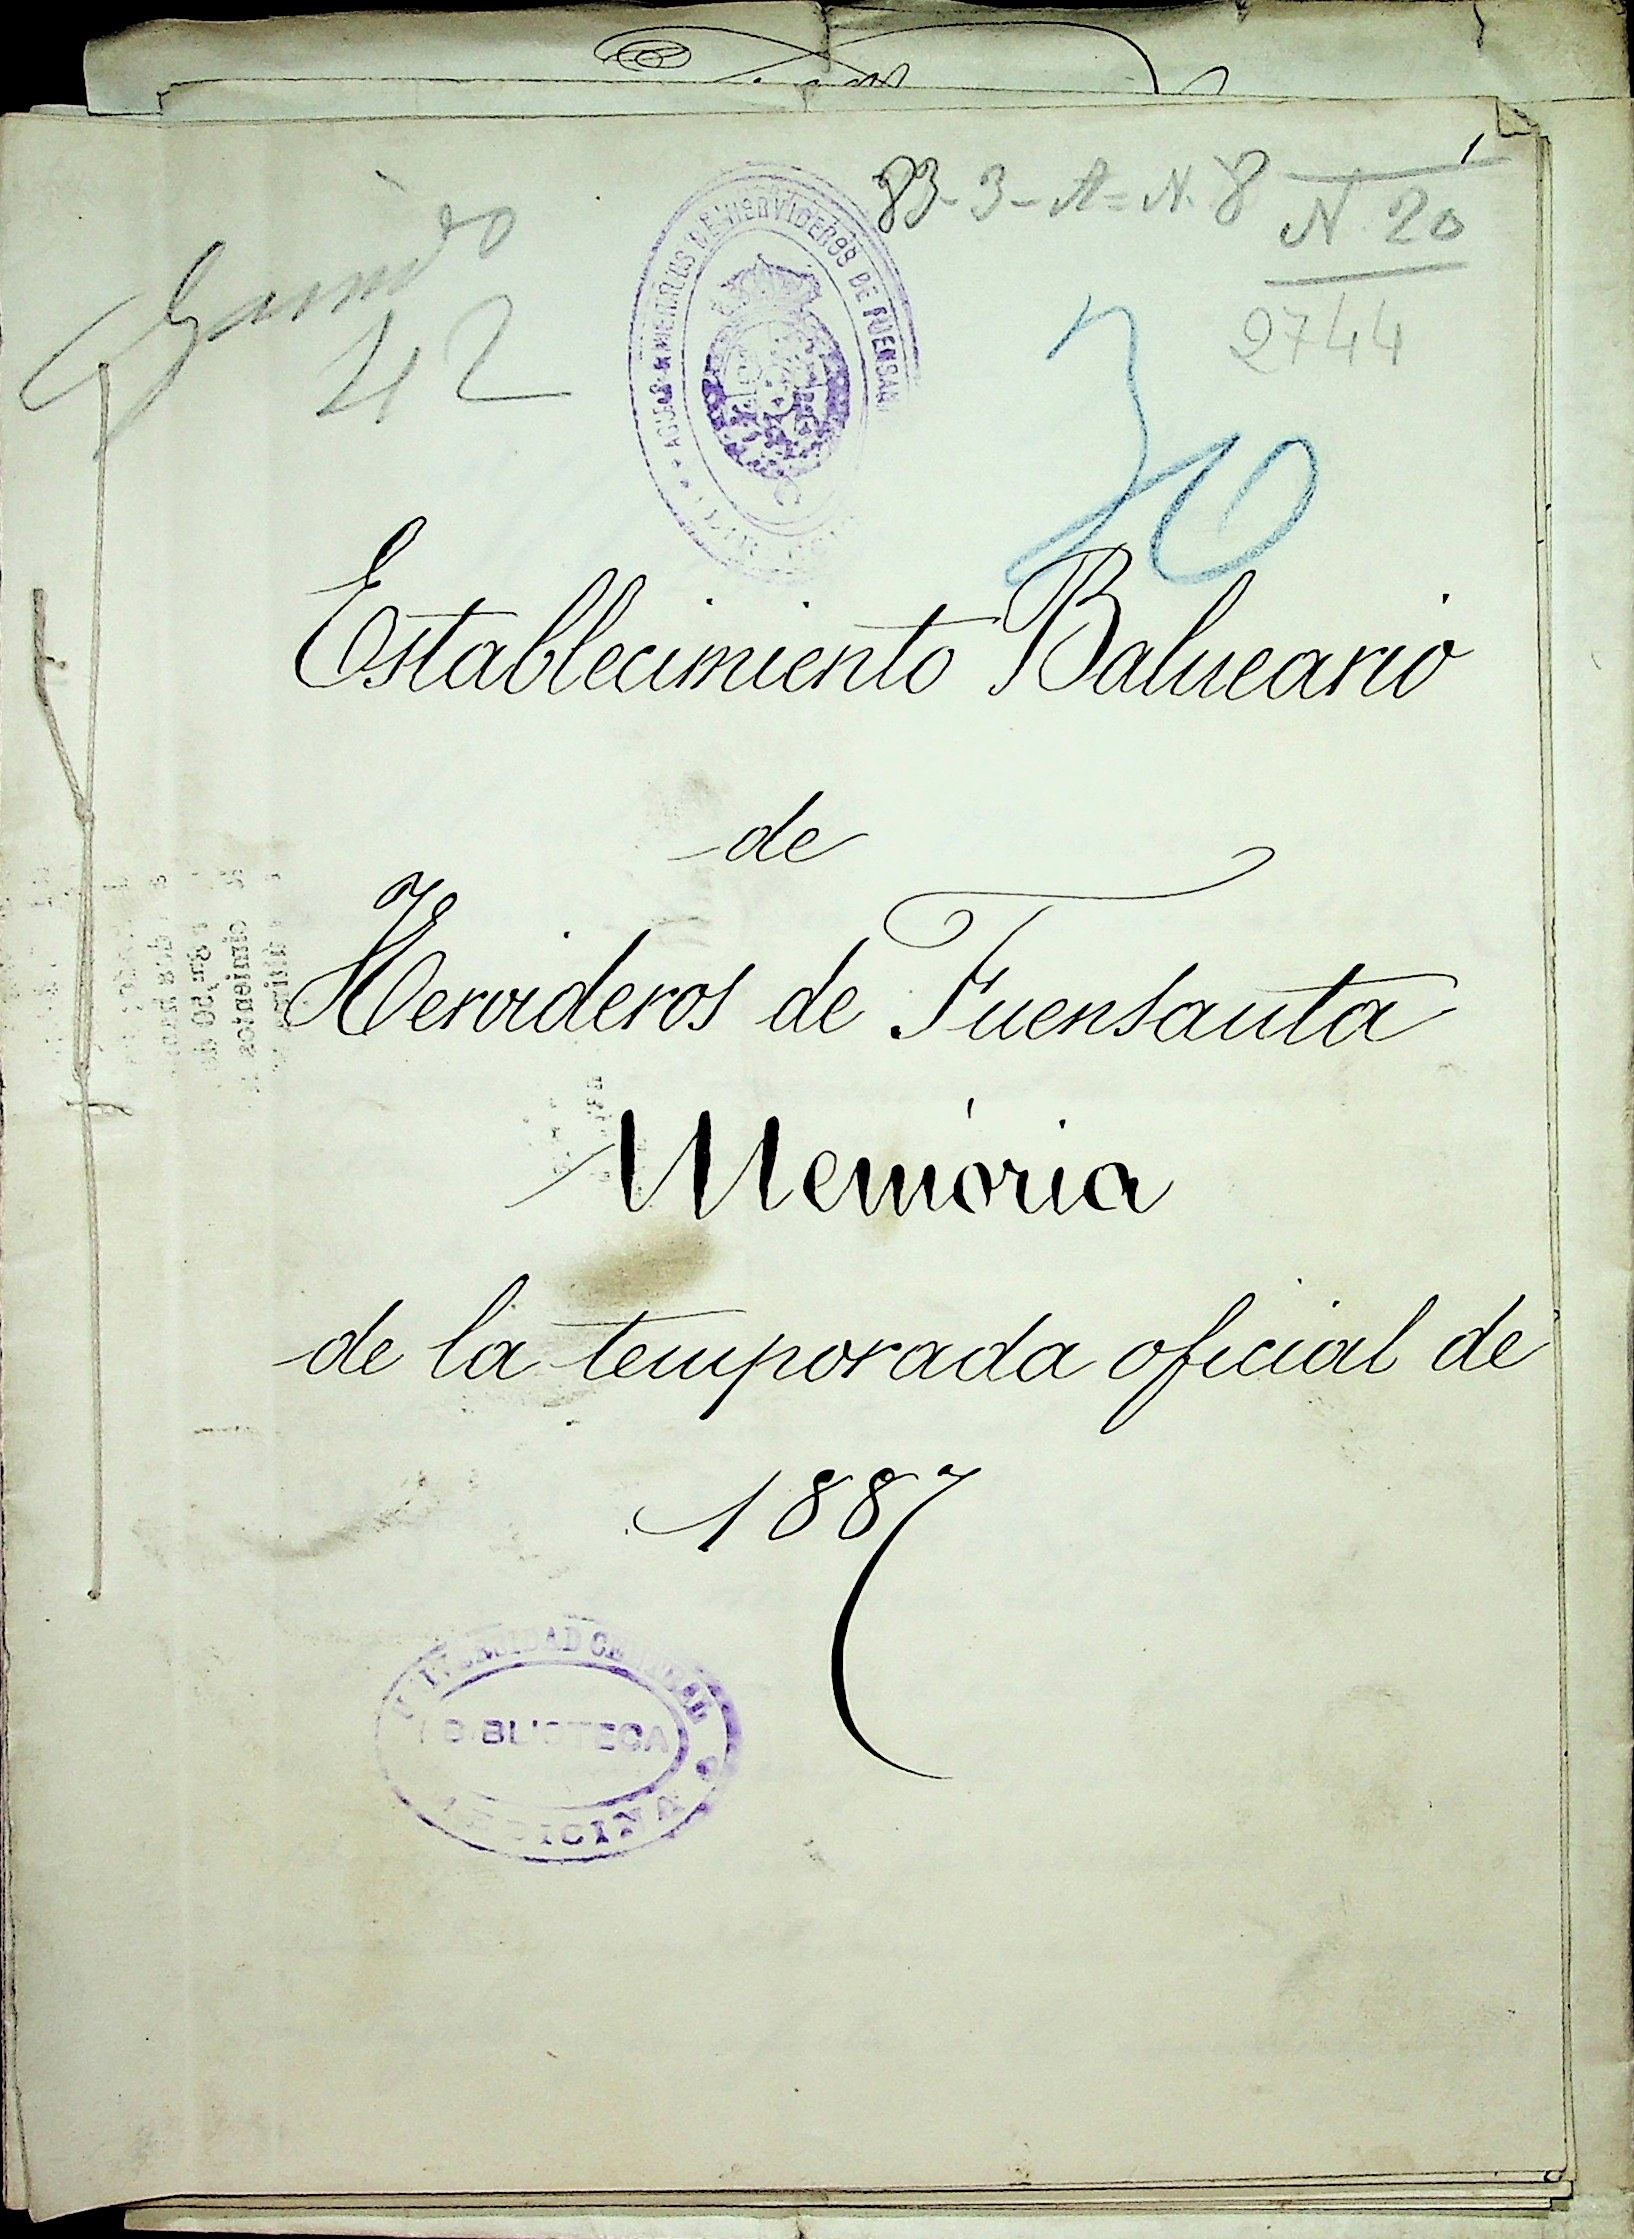 83-3-A=N.8
N. 20
2744
42
AGUAS MINERALES DE HERVIDEROS DE FUENSAN
Establecimiento Balneario
de
Hervideros de Fuensanta
Memoria
de la temporada oficial de
1887
UNIVERSIDAD CENTRAL
BIBLIOTECA
MEDICINA